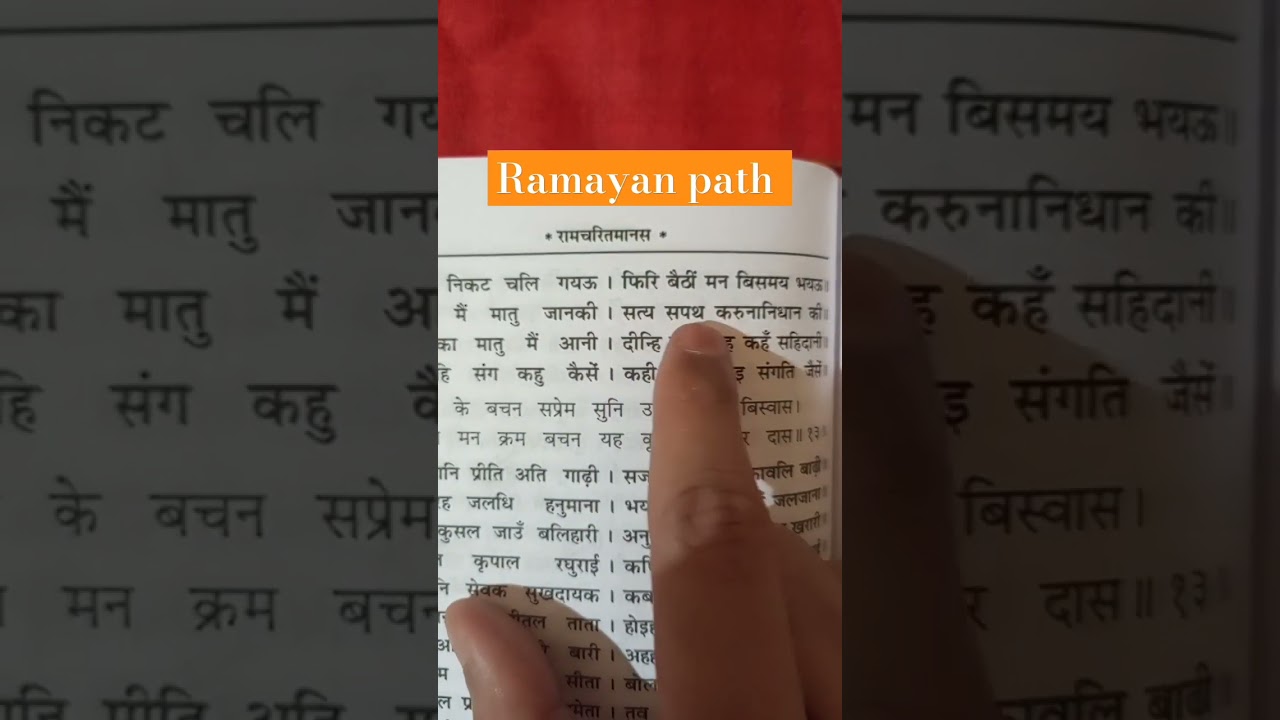 Ramayan path
* रामचरितमानस *
निकट चलि गयऊ । फिरि बैठीं मन बिसमय भयऊ॥
मैं मातु जानकी । सत्य सपथ करुनानिधान की॥
का मातु मैं आनी । दीन्हि ह कहँ सहिदानी॥
हि संग कहु कैसें । कही इ संगति जैसें॥
के बचन सप्रेम सुनि उ बिस्वास।
मन क्रम बचन यह र दास॥ १३
नि प्रीति अति गाढ़ी । सज वलि बाढ़ी॥
ह जलधि हनुमाना । भय जलजाना॥
कुसल जाउँ बलिहारी । अनु खरारी॥
कृपाल रघुराई । कपि
नि सेवक सुखदायक । कब
तल ताता । होइह
बारी । अहह
सीता । बोल
ता । तव